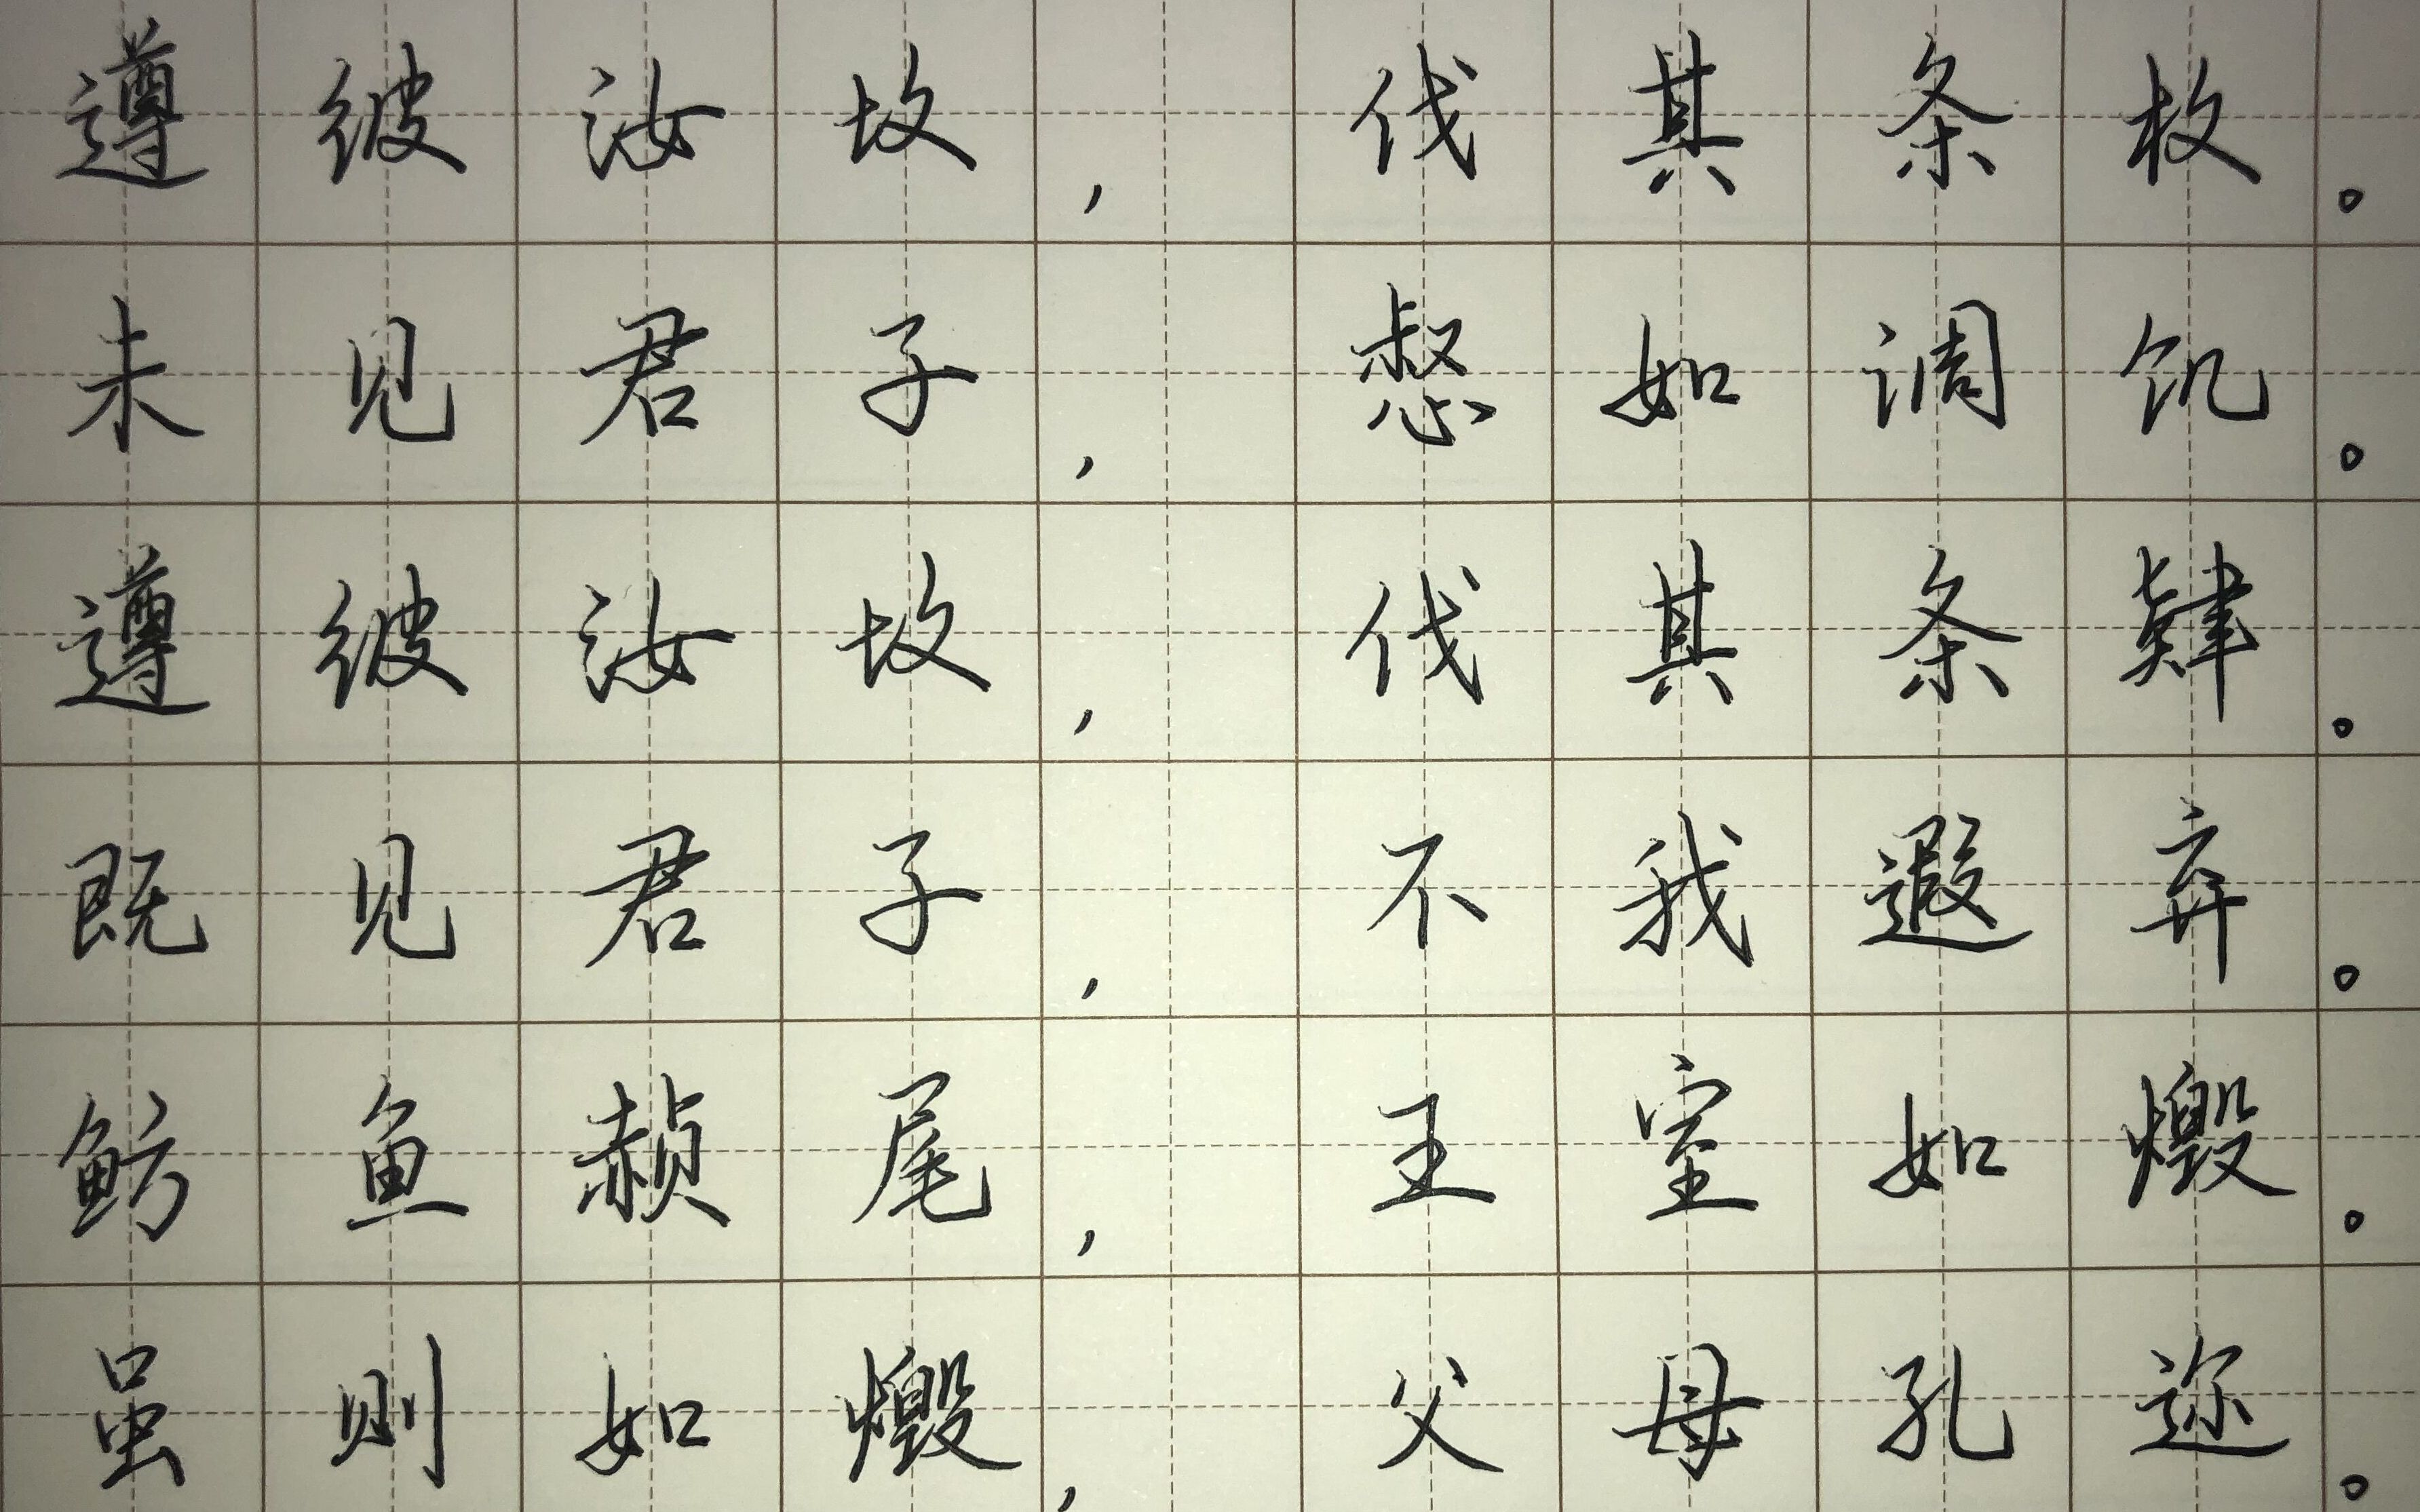 遵彼汝坟，伐其条枚。
未见君子，惄如调饥。
遵彼汝坟，伐其条肄。
既见君子，不我遐弃。
鲂鱼赪尾，王室如燬。
虽则如燬，父母孔迩。